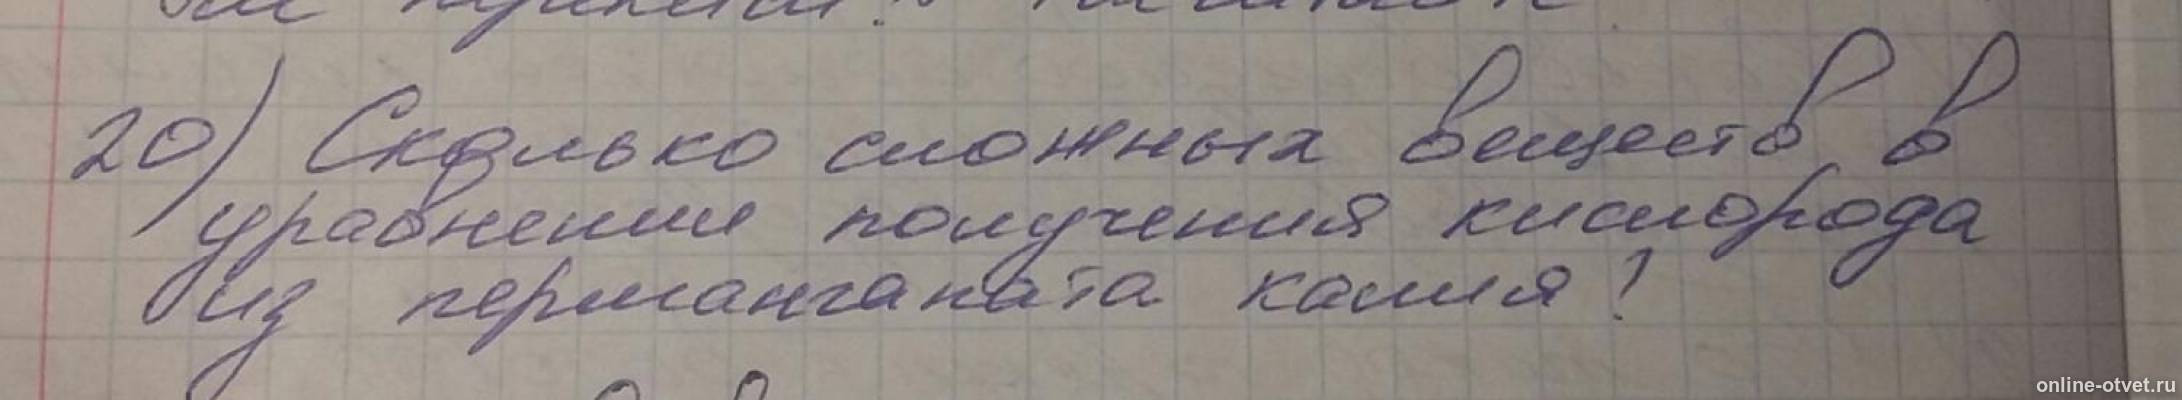 20) Сколько сложных веществ в
уравнении получения кислорода
из перманганата калия?
online-otvet.ru